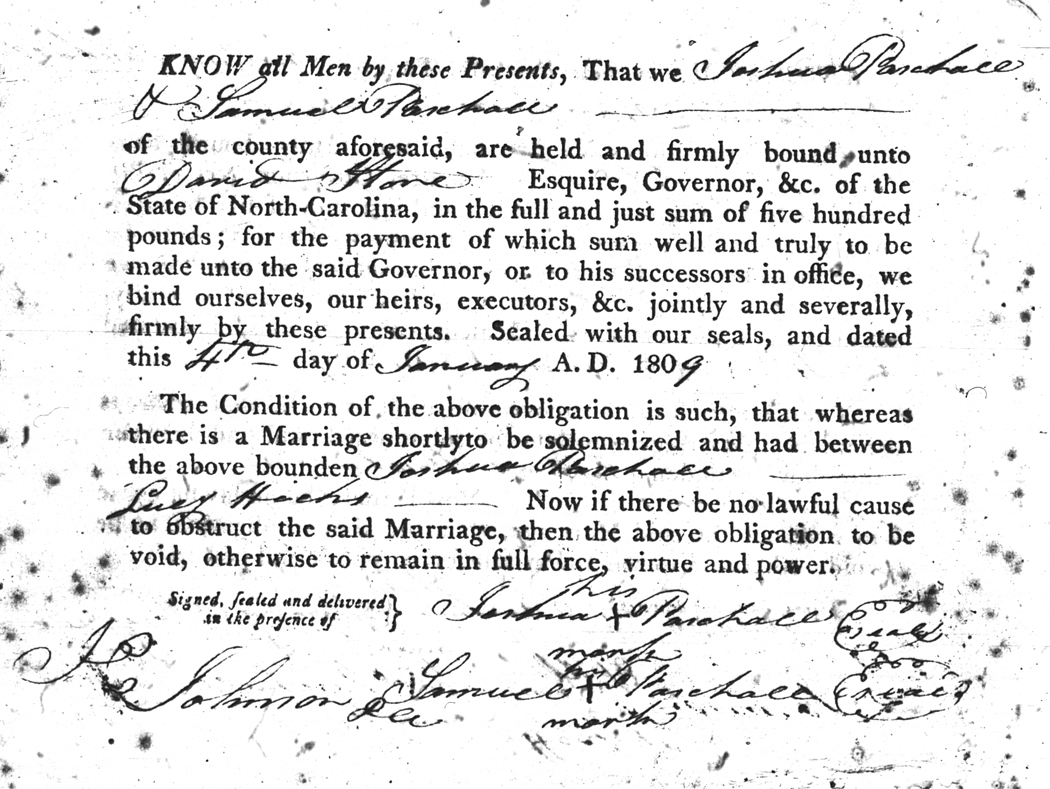 KNOW all Men by these Presents, That we Joshua Paschall
& Samuel Paschall
of the county aforesaid, are held and firmly bound unto
David Stone Esquire, Governor, &c. of the
State of North-Carolina, in the full and just sum of five hundred
pounds; for the payment of which sum well and truly to be
made unto the said Governor, or to his successors in office, we
bind ourselves, our heirs, executors, &c. jointly and severally,
firmly by these presents. Sealed with our seals, and dated
this 4th day of January A. D. 1809
The Condition of the above obligation is such, that whereas
there is a Marriage shortlyto be solemnized and had between
the above bounden Joshua Paschall
Lucy Hocks Now if there be no lawful cause
to obstruct the said Marriage, then the above obligation to be
void, otherwise to remain in full force, virtue and power.
Signed, sealed and delivered
in the presence of
his
Joshua + Paschall seal
mark
his
Samuel + Paschall seal
mark
Johnson